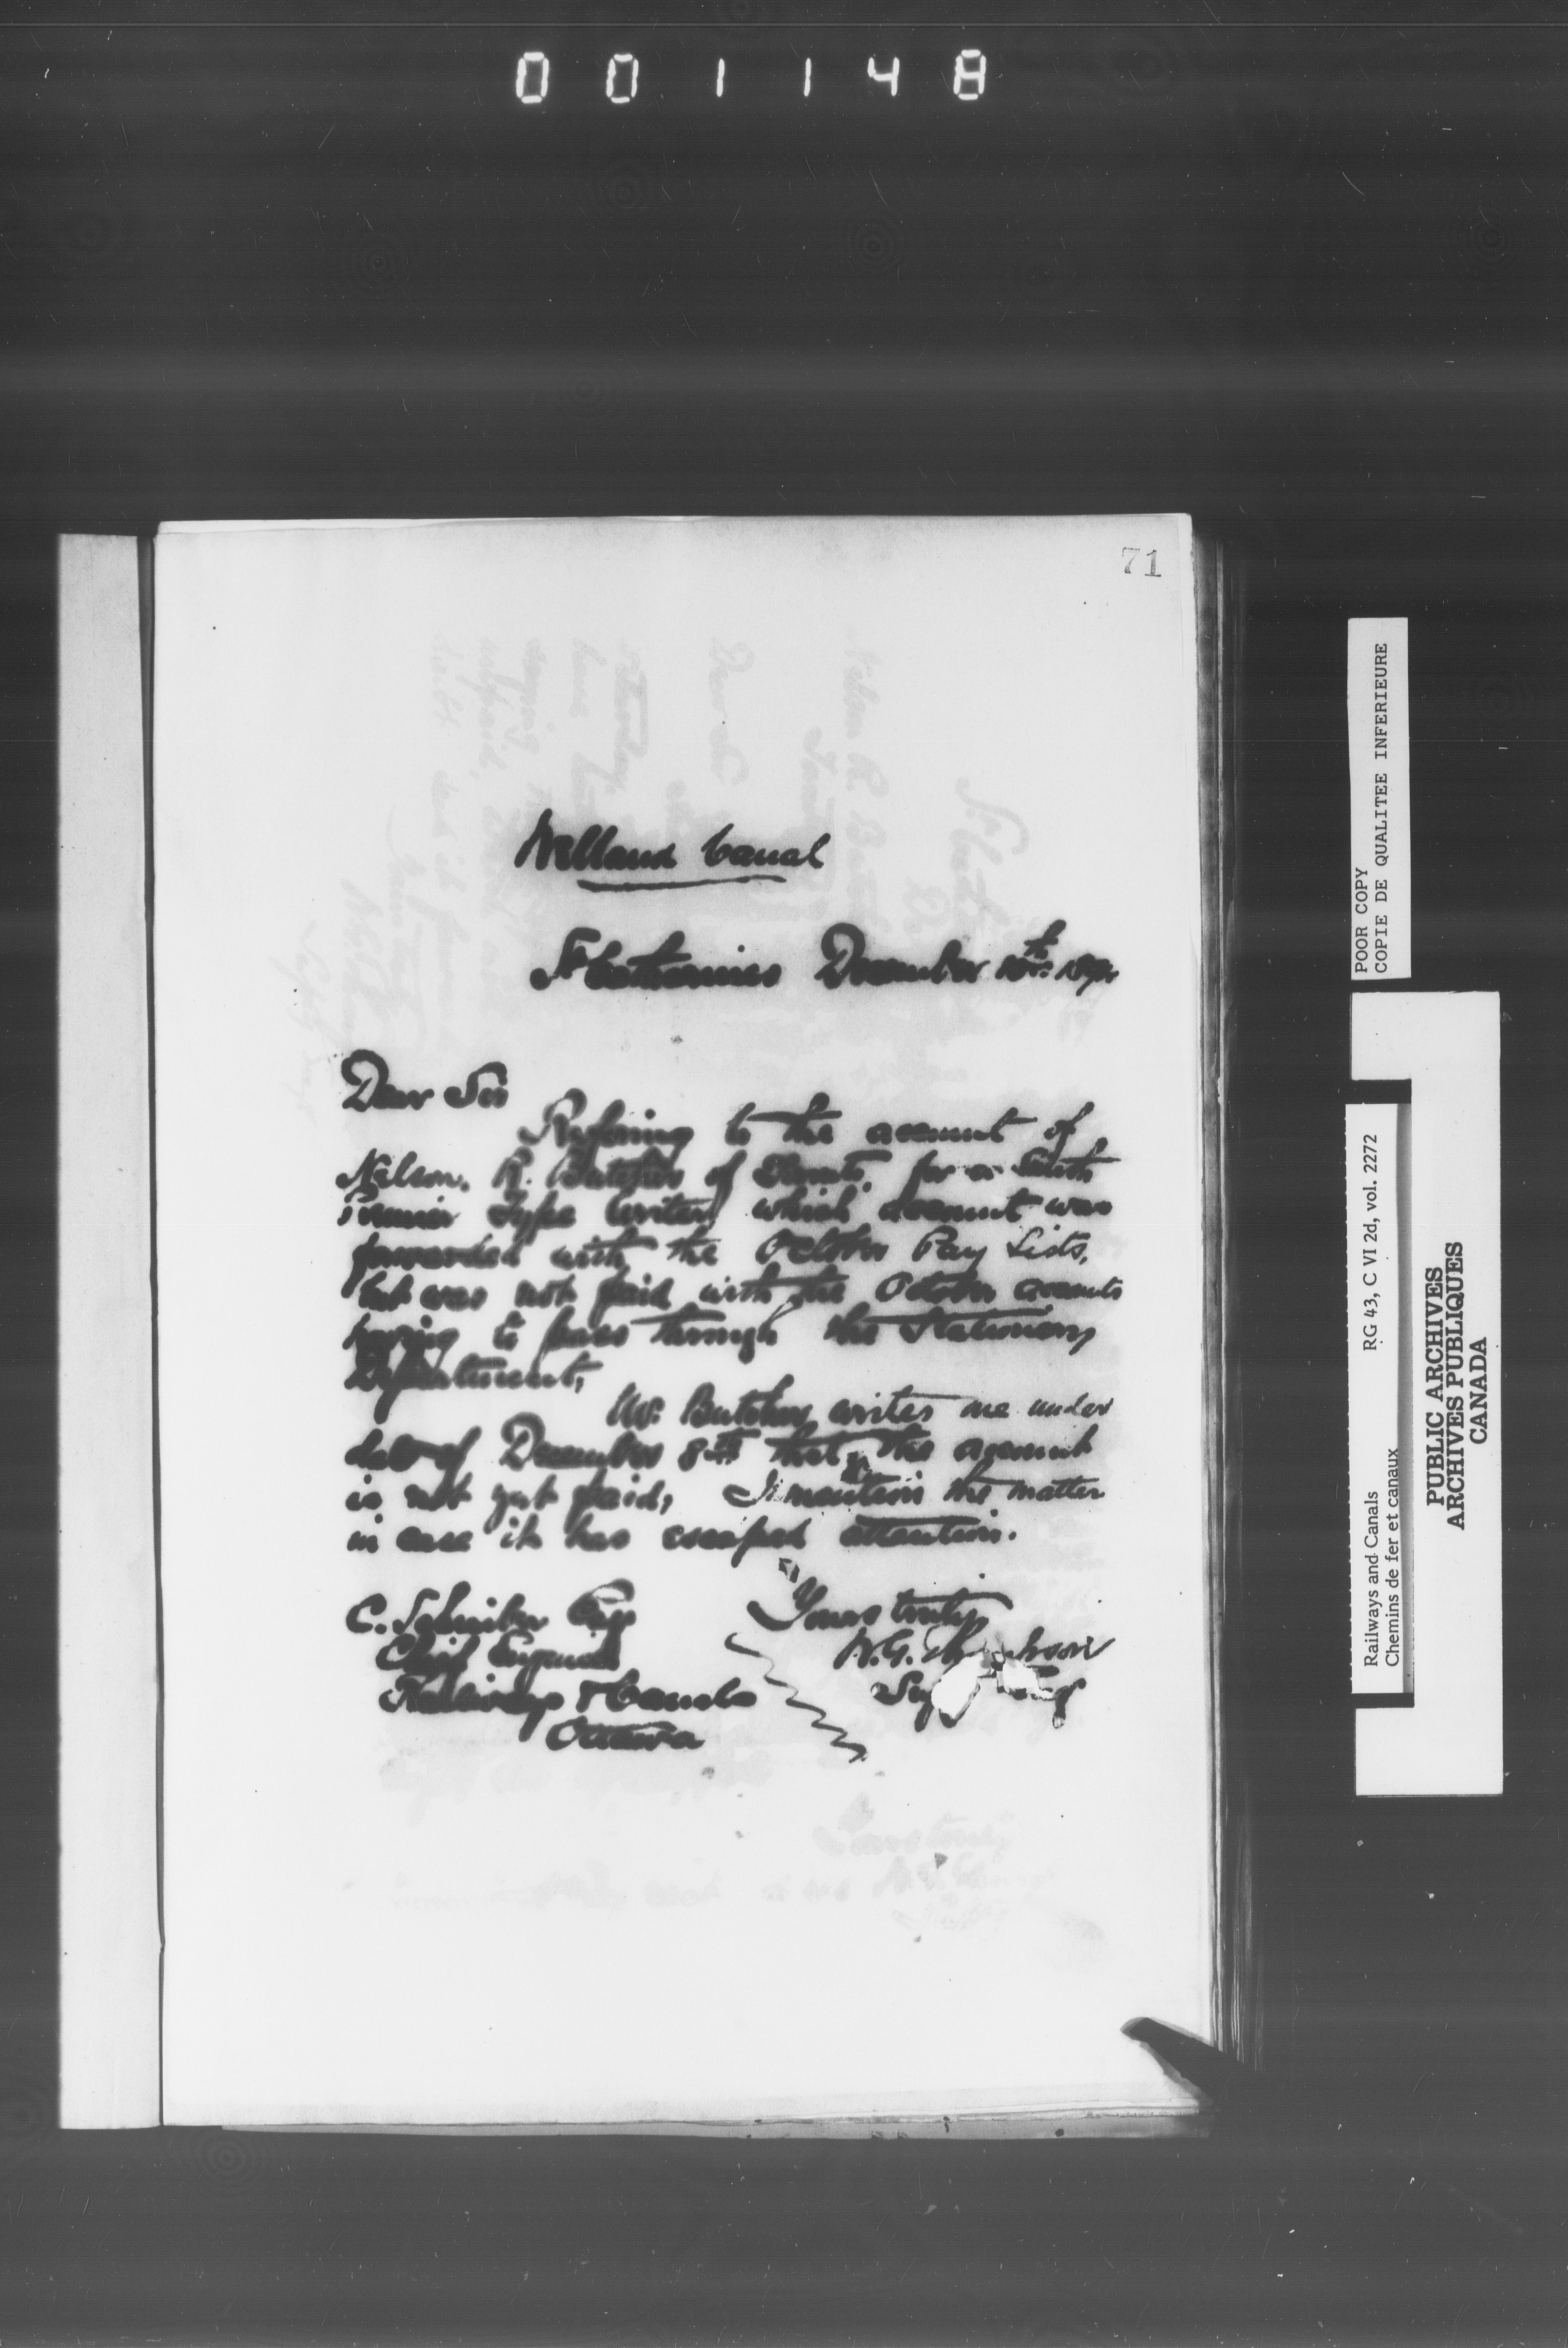 001148
71
Welland Canal
St Catharines December 10th
Dear Sir
Referring to the account of
Nelson. R. Butcher of Toronto, for a Smith
Premier Type Writer, which account was
forwarded with the October Pay Lists,
but was not paid with the October accounts
having to pass through the Stationery
Department,
Mr. Butcher writes me under
date of December 8th that the account
is not yet paid, I mention the matter
in case it has escaped attention.
C. Schreiber Esq
Chief Engineer
Railways & Canals
Ottawa
Yours truly
W.G.
POOR COPY
COPIE DE QUALITEE INFERIEURE
Railways and Canals RG 43, C VI 2d, vol. 2272
Chemins de fer et canaux
PUBLIC ARCHIVES
ARCHIVES PUBLIQUES
CANADA